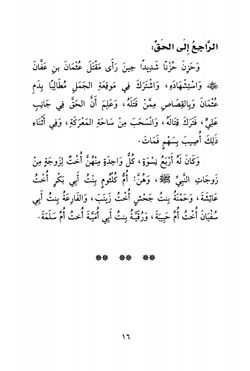 الرَّاجِعُ إِلَى الحَقِّ:
وَحَزِنَ حُزْنًا شَدِيدًا حِينَ رَأَى مَقْتَلَ عُثْمَانَ بنِ عَفَّانَ
ﷺ وَاسْتِشْهَادَهِ، وَاشْتَرَكَ فِي مَوقِعَةِ الجَمَلِ مُطَالِبًا بِدَمِ
عُثْمَانَ وَبِالقِصَاصِ مِمَّنْ قَتَلُهُ، وَعَلِمَ أَنَّ الحَقَّ فِي جَانِبِ
عَلِيٍّ، فَتَرَكَ قِتَالَهُ، وَانْسَحَبَ مِنْ سَاحَةِ المَعْرَكَةِ، وَفِي أَثْنَاءِ
ذَلِكَ أُصِيبَ بِسَهْمٍ فَمَاتَ.
وَكَانَ لَهُ أَرْبَعُ نِسْوَةٍ، كُلُّ وَاحِدَةٍ مِنْهُنَّ أُخْتٌ لِزَوجَةٍ مِنْ
زَوجَاتِ النَّبِيِّ ﷺ، وَهُنَّ: أُمُّ كُلْثُومٍ بِنْتُ أَبِي بَكْرٍ أُخْتُ
عَائِشَةَ، وَحَمْنَةُ بِنتُ جَحْشٍ أُخْتُ زَيْنَبَ، وَالفَارِعَةُ بِنتُ أَبِي
سُفْيَانَ أُخْتُ أُمِّ حَبِيبَةَ، وَرُقَيَّةُ بِنتُ أَبِي أُمَيَّةَ أُخْتُ أُمِّ سَلَمَةَ.
١٦